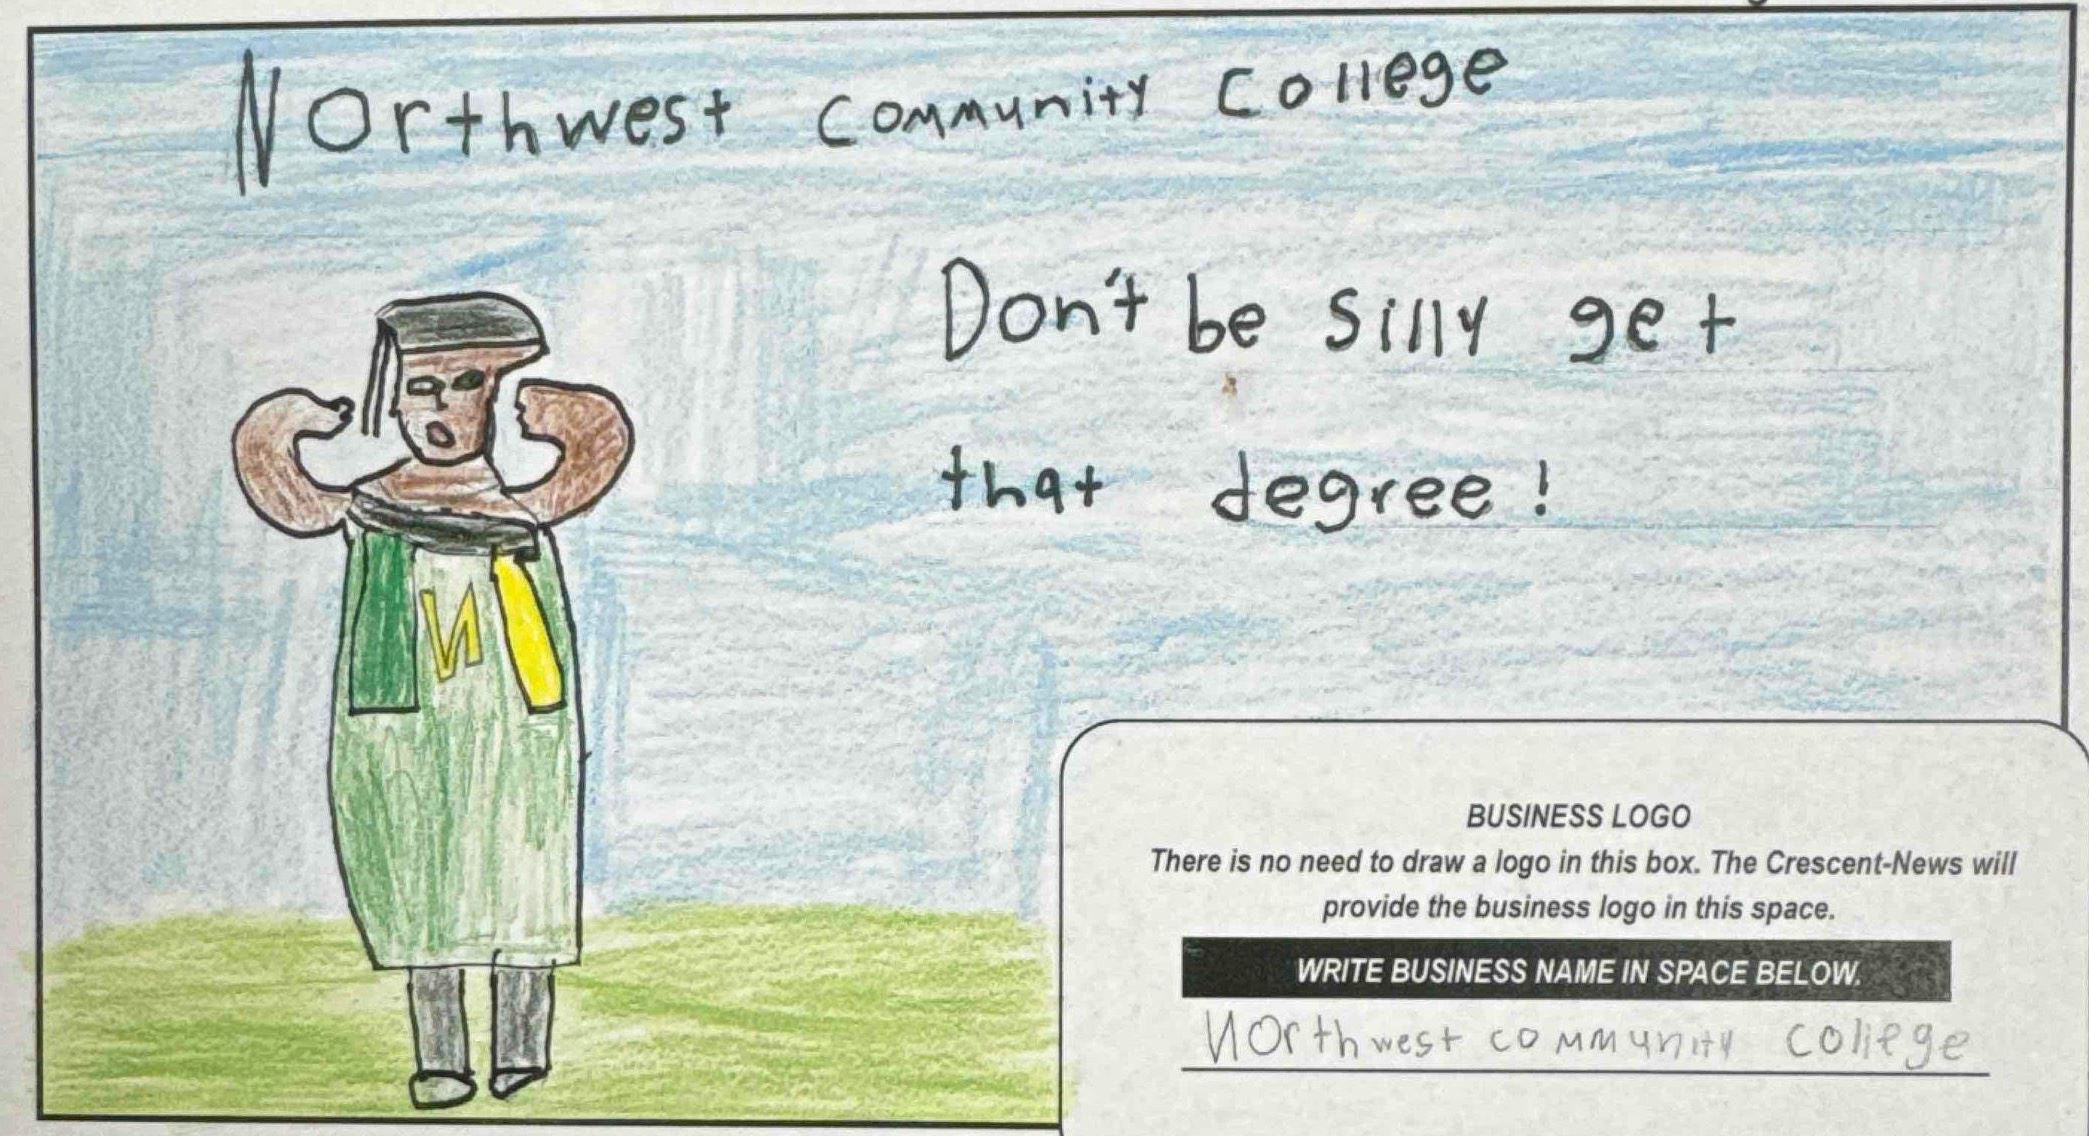 Northwest Community College
Don't be silly get
that degree!
N
BUSINESS LOGO
There is no need to draw a logo in this box. The Crescent-News will
provide the business logo in this space.
WRITE BUSINESS NAME IN SPACE BELOW.
Northwest community college